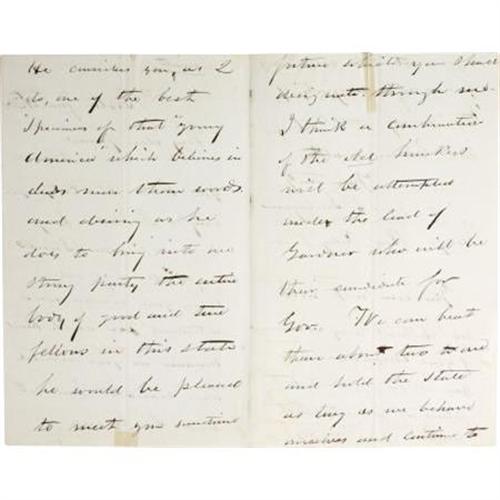 He considers you, as I
do, one of the best
specimens of that "young
America" which believes in
deeds more than words.
and desiring as he
does to bring into one
strong party, "the entire
body of good and true
fellows in this state
he would be pleased
to meet you sometime
future which you shall
designate through me.
I think a combination
of the old hunkers
will be attempted
under the lead of
Gardner who will be
their candidate for
Gov. We can beat
them about two to one
and hold the State
as long as we behave
ourselves and continue to